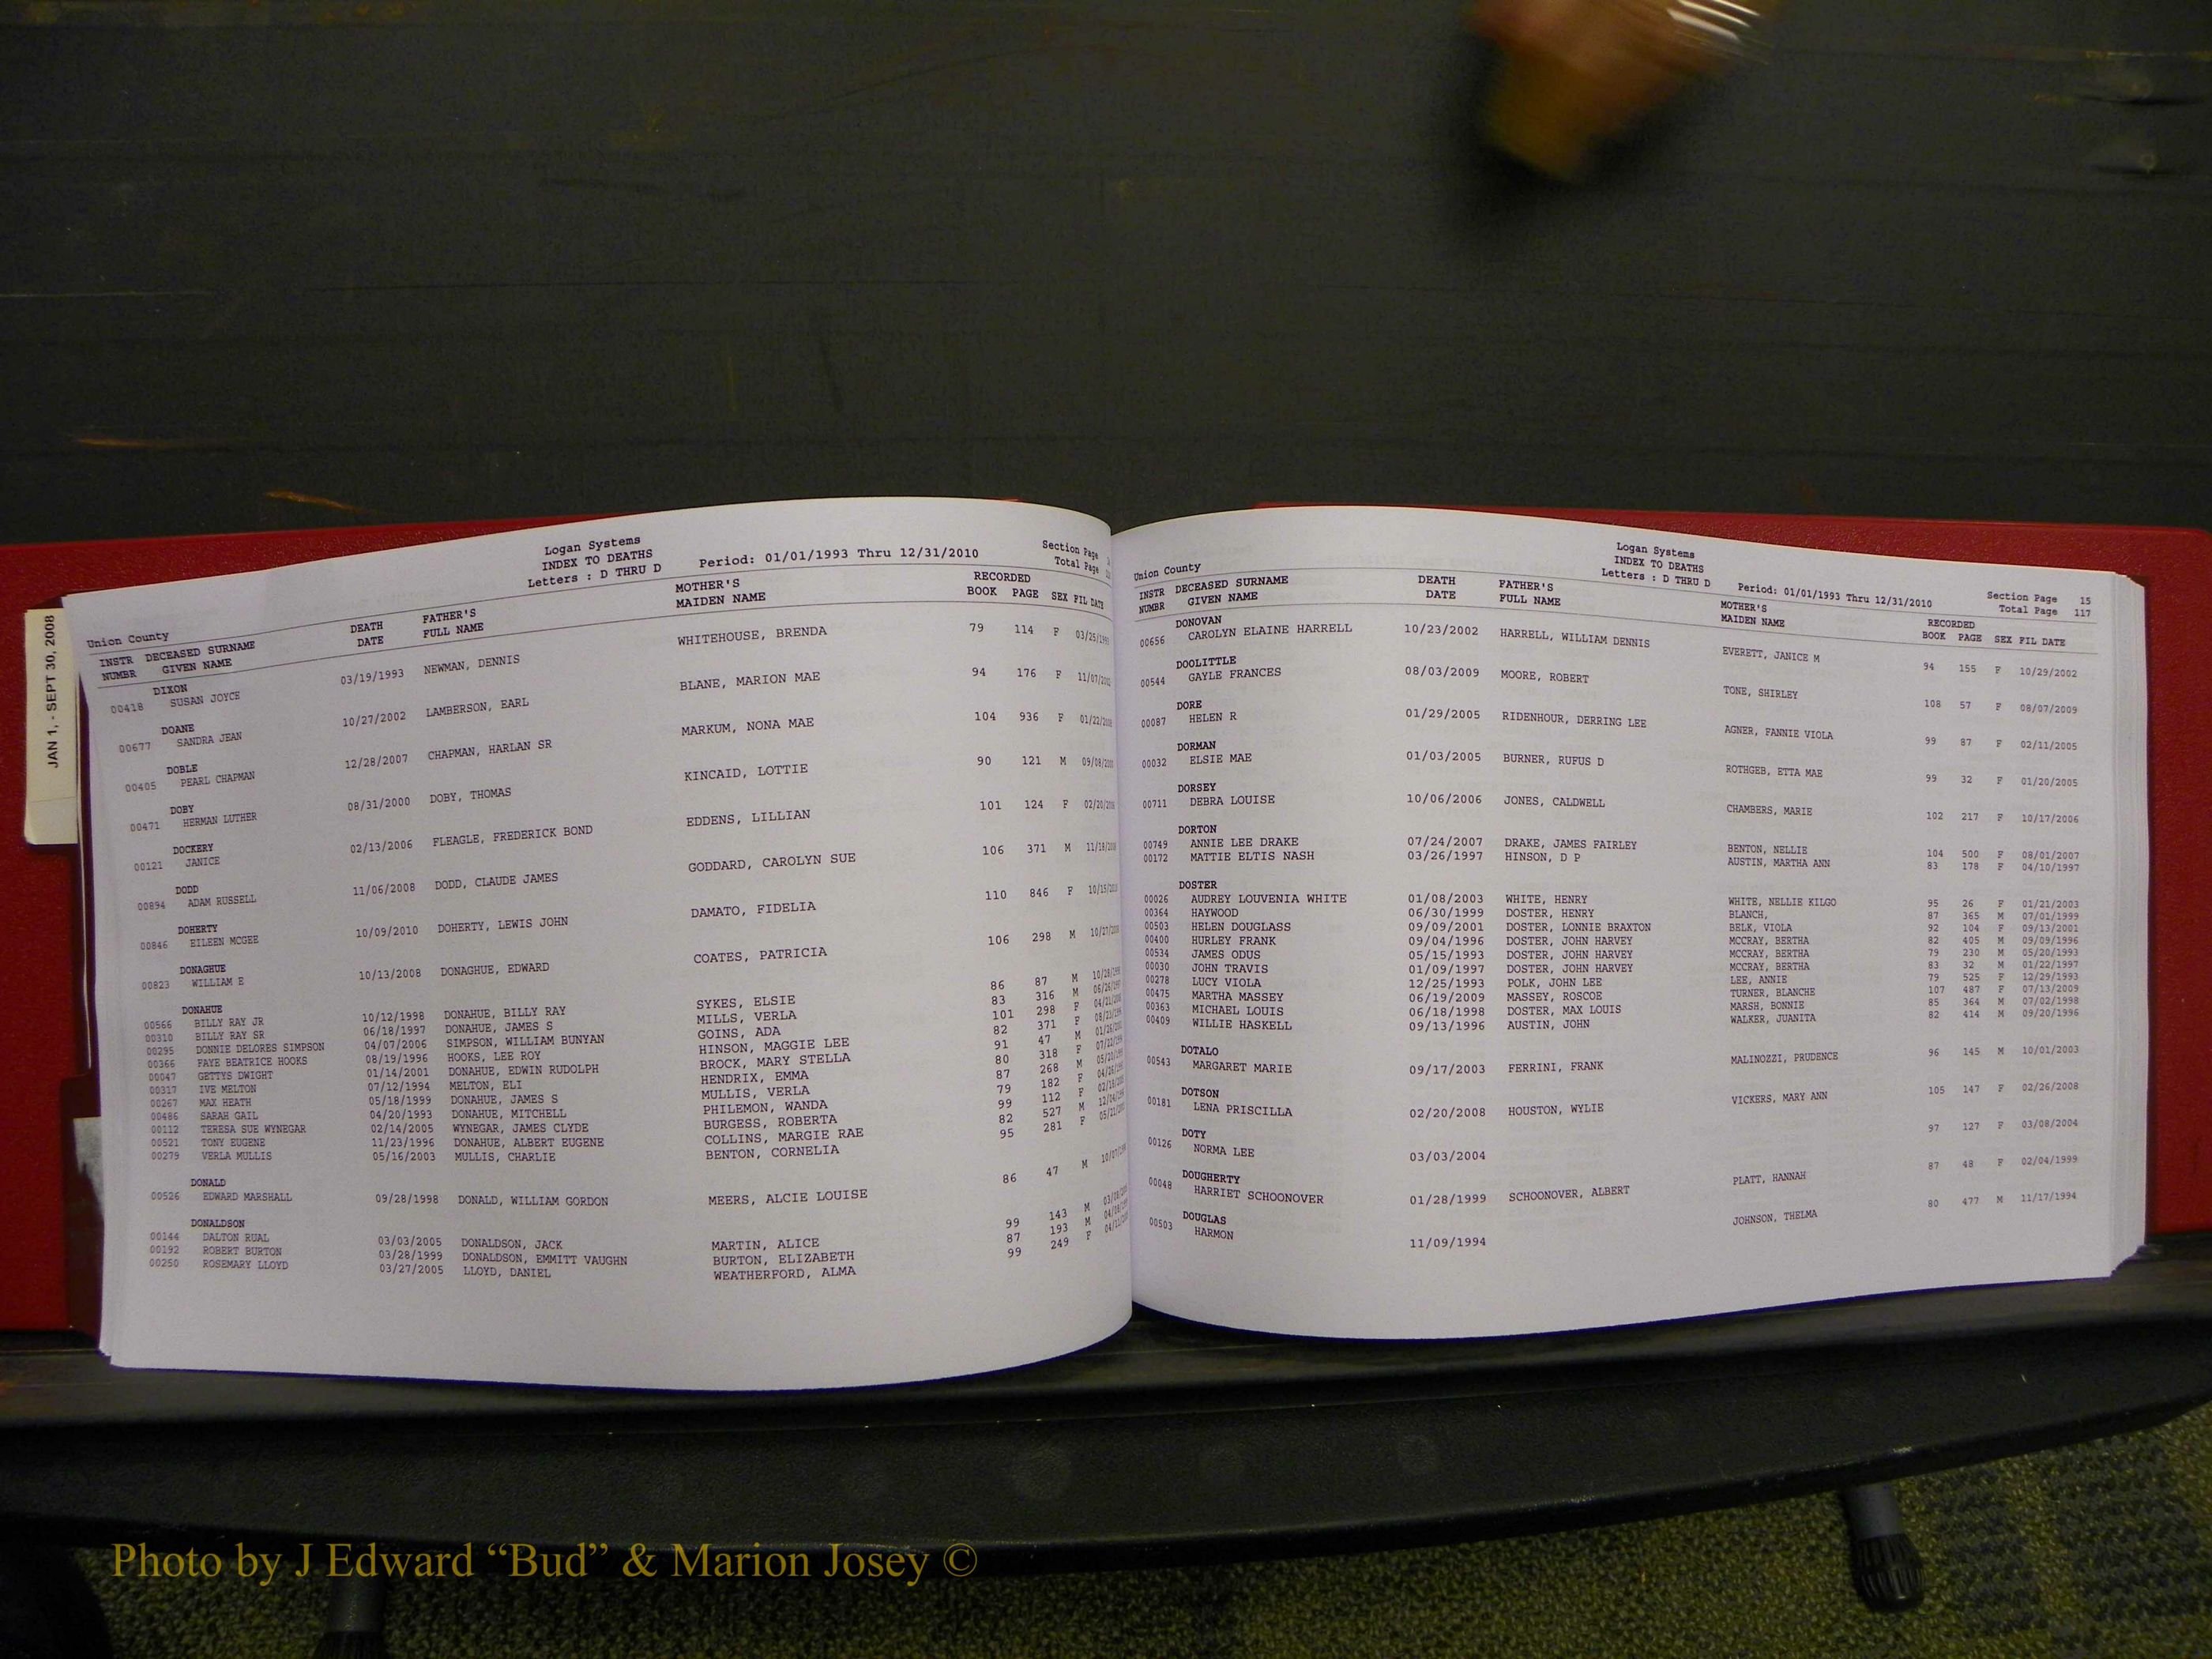 JAN 1, - SEPT 30, 2008
Logan Systems
INDEX TO DEATHS
Letters : D THRU D
Period: 01/01/1993 Thru 12/31/2010
Section Page
Total Page
Union County
INSTR DECEASED SURNAME DEATH FATHER'S MOTHER'S RECORDED
NUMBR GIVEN NAME DATE FULL NAME MAIDEN NAME BOOK PAGE SEX FIL DATE
DIXON
00418 SUSAN JOYCE 03/19/1993 NEWMAN, DENNIS WHITEHOUSE, BRENDA 79 114 F
DOANE
00677 SANDRA JEAN 10/27/2002 LAMBERSON, EARL BLANE, MARION MAE 94 176 F
DOBLE
00405 PEARL CHAPMAN 12/28/2007 CHAPMAN, HARLAN SR MARKUM, NONA MAE 104 936 F
DOBY
00471 HERMAN LUTHER 08/31/2000 DOBY, THOMAS KINCAID, LOTTIE 90 121 M
DOCKERY
00121 JANICE 02/13/2006 FLEAGLE, FREDERICK BOND EDDENS, LILLIAN 101 124 F
DODD
00894 ADAM RUSSELL 11/06/2008 DODD, CLAUDE JAMES GODDARD, CAROLYN SUE 106 371 M
DOHERTY
00846 EILEEN MCGEE 10/09/2010 DOHERTY, LEWIS JOHN DAMATO, FIDELIA 110 846 F
DONAGHUE
00823 WILLIAM E 10/13/2008 DONAGHUE, EDWARD COATES, PATRICIA 106 298 M
DONAHUE
00566 BILLY RAY JR 10/12/1998 DONAHUE, BILLY RAY SYKES, ELSIE 86 87 M
00310 BILLY RAY SR 06/18/1997 DONAHUE, JAMES S MILLS, VERLA 83 316 M
00295 DONNIE DELORES SIMPSON 04/07/2006 SIMPSON, WILLIAM BUNYAN GOINS, ADA 101 298 F
00366 FAYE BEATRICE HOOKS 08/19/1996 HOOKS, LEE ROY HINSON, MAGGIE LEE 82 371 F
00047 GETTYS DWIGHT 01/14/2001 DONAHUE, EDWIN RUDOLPH BROCK, MARY STELLA 91 47 M
00317 IVE MELTON 07/12/1994 MELTON, ELI HENDRIX, EMMA 80 318 F
00267 MAX HEATH 05/18/1999 DONAHUE, JAMES S MULLIS, VERLA 87 268 M
00486 SARAH GAIL 04/20/1993 DONAHUE, MITCHELL PHILEMON, WANDA 79 182 F
00112 TERESA SUE WYNEGAR 02/14/2005 WYNEGAR, JAMES CLYDE BURGESS, ROBERTA 99 112 F
00521 TONY EUGENE 11/23/1996 DONAHUE, ALBERT EUGENE COLLINS, MARGIE RAE 82 527 M
00279 VERLA MULLIS 05/16/2003 MULLIS, CHARLIE BENTON, CORNELIA 95 281 F
DONALD
00526 EDWARD MARSHALL 09/28/1998 DONALD, WILLIAM GORDON MEERS, ALCIE LOUISE 86 47 M
DONALDSON
00144 DALTON RUAL 03/03/2005 DONALDSON, JACK MARTIN, ALICE 99 143 M
00192 ROBERT BURTON 03/28/1999 DONALDSON, EMMITT VAUGHN BURTON, ELIZABETH 87 193 M
00250 ROSEMARY LLOYD 03/27/2005 LLOYD, DANIEL WEATHERFORD, ALMA 99 249 F
Logan Systems
INDEX TO DEATHS
Letters : D THRU D
Period: 01/01/1993 Thru 12/31/2010
Section Page 15
Total Page 117
Union County
INSTR DECEASED SURNAME DEATH FATHER'S MOTHER'S RECORDED
NUMBR GIVEN NAME DATE FULL NAME MAIDEN NAME BOOK PAGE SEX FIL DATE
DONOVAN
00656 CAROLYN ELAINE HARRELL 10/23/2002 HARRELL, WILLIAM DENNIS EVERETT, JANICE M 94 155 F 10/29/2002
DOOLITTLE
00544 GAYLE FRANCES 08/03/2009 MOORE, ROBERT TONE, SHIRLEY 108 57 F 08/07/2009
DORE
00087 HELEN R 01/29/2005 RIDENHOUR, DERRING LEE AGNER, FANNIE VIOLA 99 87 F 02/11/2005
DORMAN
00032 ELSIE MAE 01/03/2005 BURNER, RUFUS D ROTHGEB, ETTA MAE 99 32 F 01/20/2005
DORSEY
00711 DEBRA LOUISE 10/06/2006 JONES, CALDWELL CHAMBERS, MARIE 102 217 F 10/17/2006
DORTON
00749 ANNIE LEE DRAKE 07/24/2007 DRAKE, JAMES FAIRLEY BENTON, NELLIE 104 500 F 08/01/2007
00172 MATTIE ELTIS NASH 03/26/1997 HINSON, D P AUSTIN, MARTHA ANN 83 178 F 04/10/1997
DOSTER
00026 AUDREY LOUVENIA WHITE 01/08/2003 WHITE, HENRY WHITE, NELLIE KILGO 95 26 F 01/21/2003
00364 HAYWOOD 06/30/1999 DOSTER, HENRY BLANCH, 87 365 M 07/01/1999
00503 HELEN DOUGLASS 09/09/2001 DOSTER, LONNIE BRAXTON BELK, VIOLA 92 104 F 09/13/2001
00400 HURLEY FRANK 09/04/1996 DOSTER, JOHN HARVEY MCCRAY, BERTHA 82 405 M 09/09/1996
00534 JAMES ODUS 05/15/1993 DOSTER, JOHN HARVEY MCCRAY, BERTHA 79 230 M 05/20/1993
00030 JOHN TRAVIS 01/09/1997 DOSTER, JOHN HARVEY MCCRAY, BERTHA 83 32 M 01/22/1997
00278 LUCY VIOLA 12/25/1993 POLK, JOHN LEE LEE, ANNIE 79 525 F 12/29/1993
00475 MARTHA MASSEY 06/19/2009 MASSEY, ROSCOE TURNER, BLANCHE 107 487 F 07/13/2009
00363 MICHAEL LOUIS 06/18/1998 DOSTER, MAX LOUIS MARSH, BONNIE 85 364 M 07/02/1998
00409 WILLIE HASKELL 09/13/1996 AUSTIN, JOHN WALKER, JUANITA 82 414 M 09/20/1996
DOTALO
00543 MARGARET MARIE 09/17/2003 FERRINI, FRANK MALINOZZI, PRUDENCE 96 145 M 10/01/2003
DOTSON
00181 LENA PRISCILLA 02/20/2008 HOUSTON, WYLIE VICKERS, MARY ANN 105 147 F 02/26/2008
DOTY
00126 NORMA LEE 03/03/2004 97 127 F 03/08/2004
DOUGHERTY
00048 HARRIET SCHOONOVER 01/28/1999 SCHOONOVER, ALBERT PLATT, HANNAH 87 48 F 02/04/1999
DOUGLAS
00503 HARMON 11/09/1994 JOHNSON, THELMA 80 477 M 11/17/1994
Photo by J Edward “Bud” & Marion Josey ©